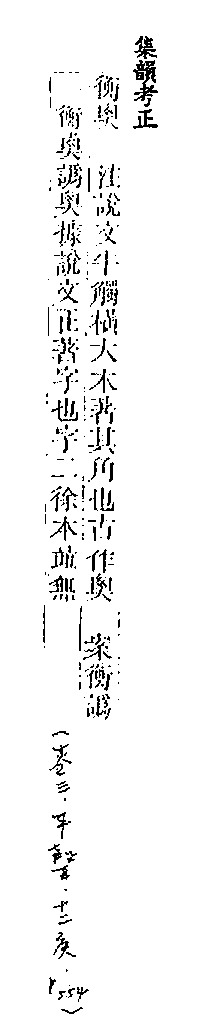 集韻考正
衡㚖 注說文牛觸橫大木著其角也古作㚖 案衡譌
衝㚖譌奥據說文正著字也字二徐本竝無
(卷三．平聲五．十二庚．P554)